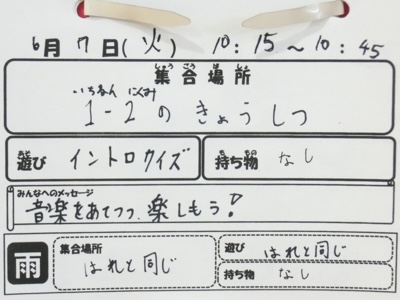 6月7日(火) 10:15〜10:45
しゅうごうばしょ
集合場所
いちねん にくみ
1-2のきょうしつ
あそ
遊び イントロクイズ
も もの
持ち物 なし
みんなへのメッセージ
音楽をあてつつ、楽しもう!
雨
集合場所 はれと同じ
遊び はれと同じ
持ち物 なし